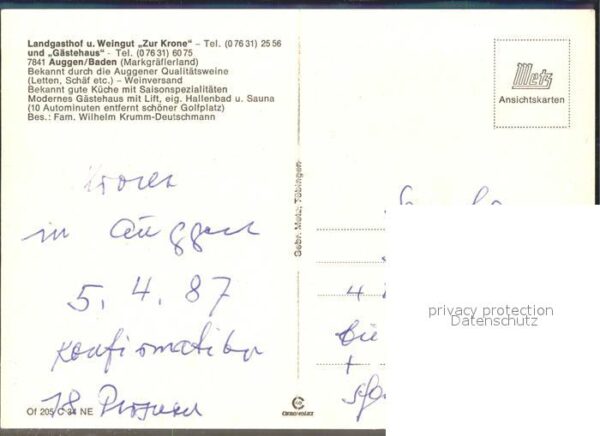 Landgasthof u. Weingut „Zur Krone" – Tel. (0 76 31) 25 56
und „Gästehaus" - Tel. (0 76 31) 60 75
7841 Auggen/Baden (Markgräflerland)
Bekannt durch die Auggener Qualitätsweine
(Letten, Schäf etc.) – Weinversand
Bekannt gute Küche mit Saisonspezialitäten
Modernes Gästehaus mit Lift, eig. Hallenbad u. Sauna
(10 Autominuten entfernt schöner Golfplatz)
Bes.: Fam. Wilhelm Krumm-Deutschmann
Metz
Ansichtskarten
Gebr. Metz, Tübingen
in Auggen
5. 4. 87
Konfirmation
18 Personen
Of 205 C 34 NE
4
die
+
privacy protection
Datenschutz